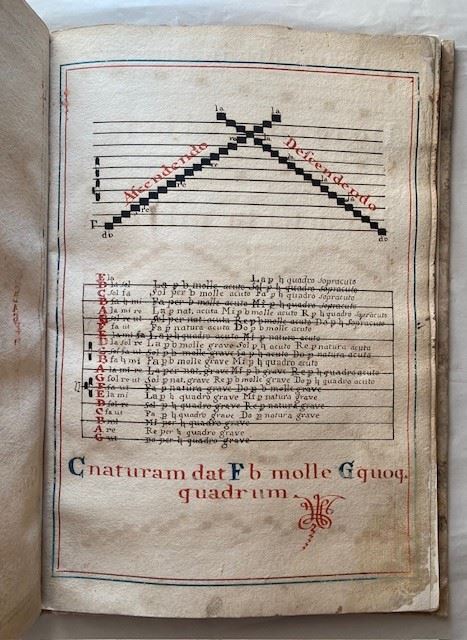 la la
Ascendendo Descendendo
Γ
do do
E la La p ♮ quadro sopracuto
D la sol La p b molle acuto Sol p ♮ quadro sopracuto
C sol fa Sol per b molle acuto Fa p ♮ quadro sopracuto
B fa ♮ mi Fa per b molle acuto Mi p ♮ quadro sopracuto
A la mi re La p nat. acuta Mi p b molle acuto R p ♮ quadro sopracuto
G sol re Sol per nat acuta Re p b molle acuto Do p ♮ quadro sopracuto
F fa ut Fa p natura acuta Do p b molle acuto
E la mi La p ♮ quadro acuto Mi p natura acuta
D la sol re La p b molle grave Sol p ♮ acuto Re p natura
C sol fa b molle grave p ♮ acuto Do p natura acuta
B fa ♮ mi Fa p b molle grave Mi p ♮ quadro acuto
A la mi re La p nat, grave Mi p b molle grave Re p ♮ quadro acuto
G sol re ut Sol p nat, grave Re p b molle grave Do p ♮ quadro acuto
F fa ut Fa p natura grave Do p b molle grave
E la mi La p ♮ quadro grave Mi p natura grave
D sol re Sol p ♮ quadro grave Re p natura grave
C fa ut Fa p ♮ quadro grave Do p natura grave
B mi Mi per ♮ quadro grave
A re Re per ♮ quadro grave
G ut Do per ♮ quadro grave
C naturam dat F b molle G quoq.
quadrum